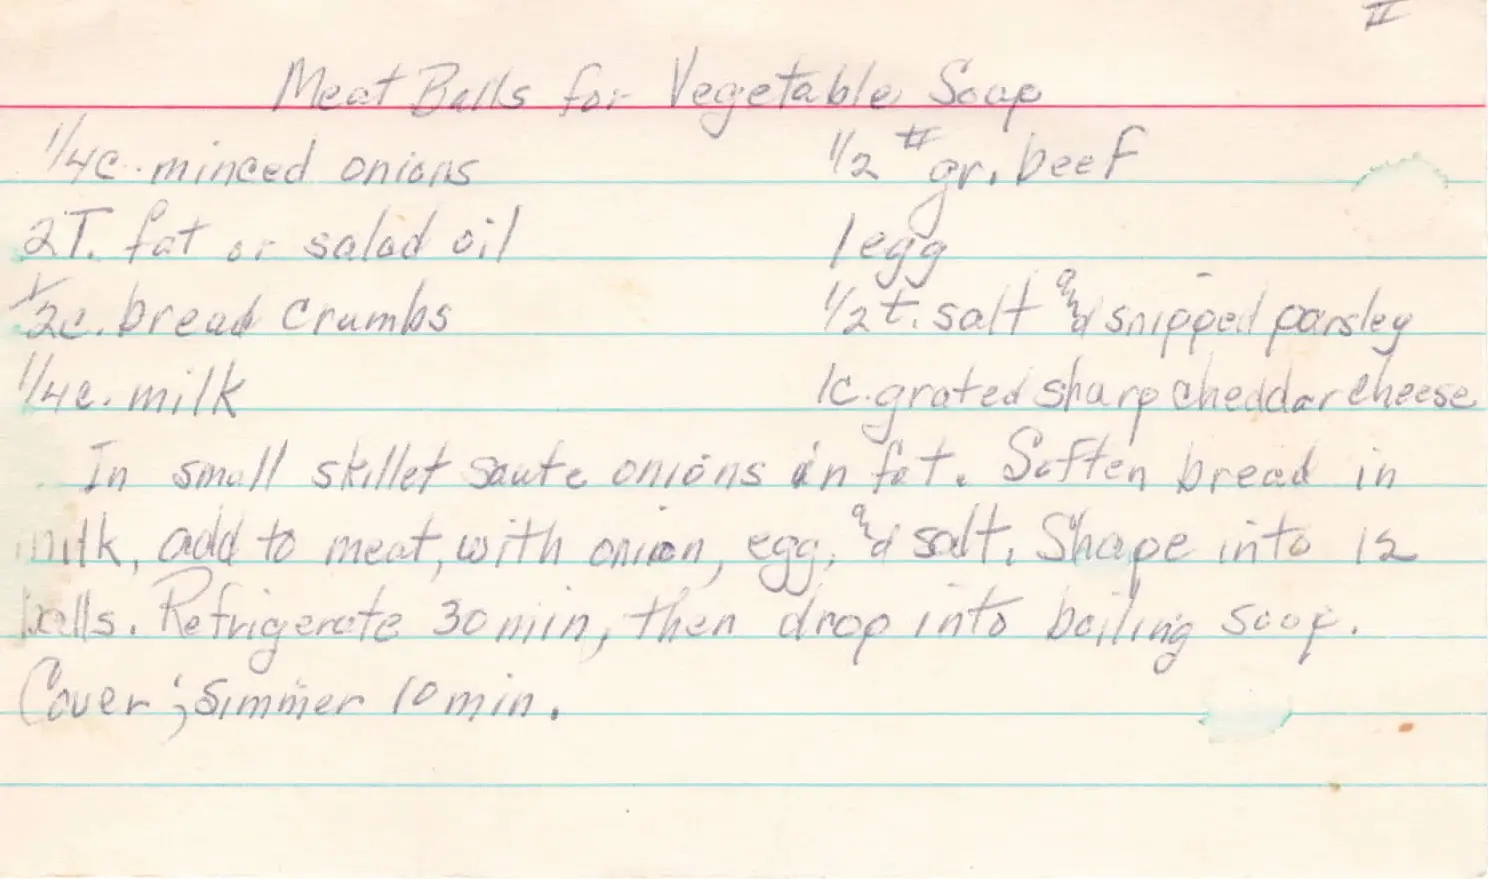 II
Meat Balls for Vegetable Soup
1/4c. minced onions 1/2 # gr. beef
2T. fat or salad oil 1 egg
1/2c. bread crumbs 1/2 t. salt and snipped parsley
1/4c. milk 1c. grated sharp cheddar cheese
In small skillet saute onions in fat. Soften bread in
milk, add to meat, with onion, egg, and salt. Shape into 12
balls. Refrigerate 30 min, then drop into boiling soup.
Cover; simmer 10 min.